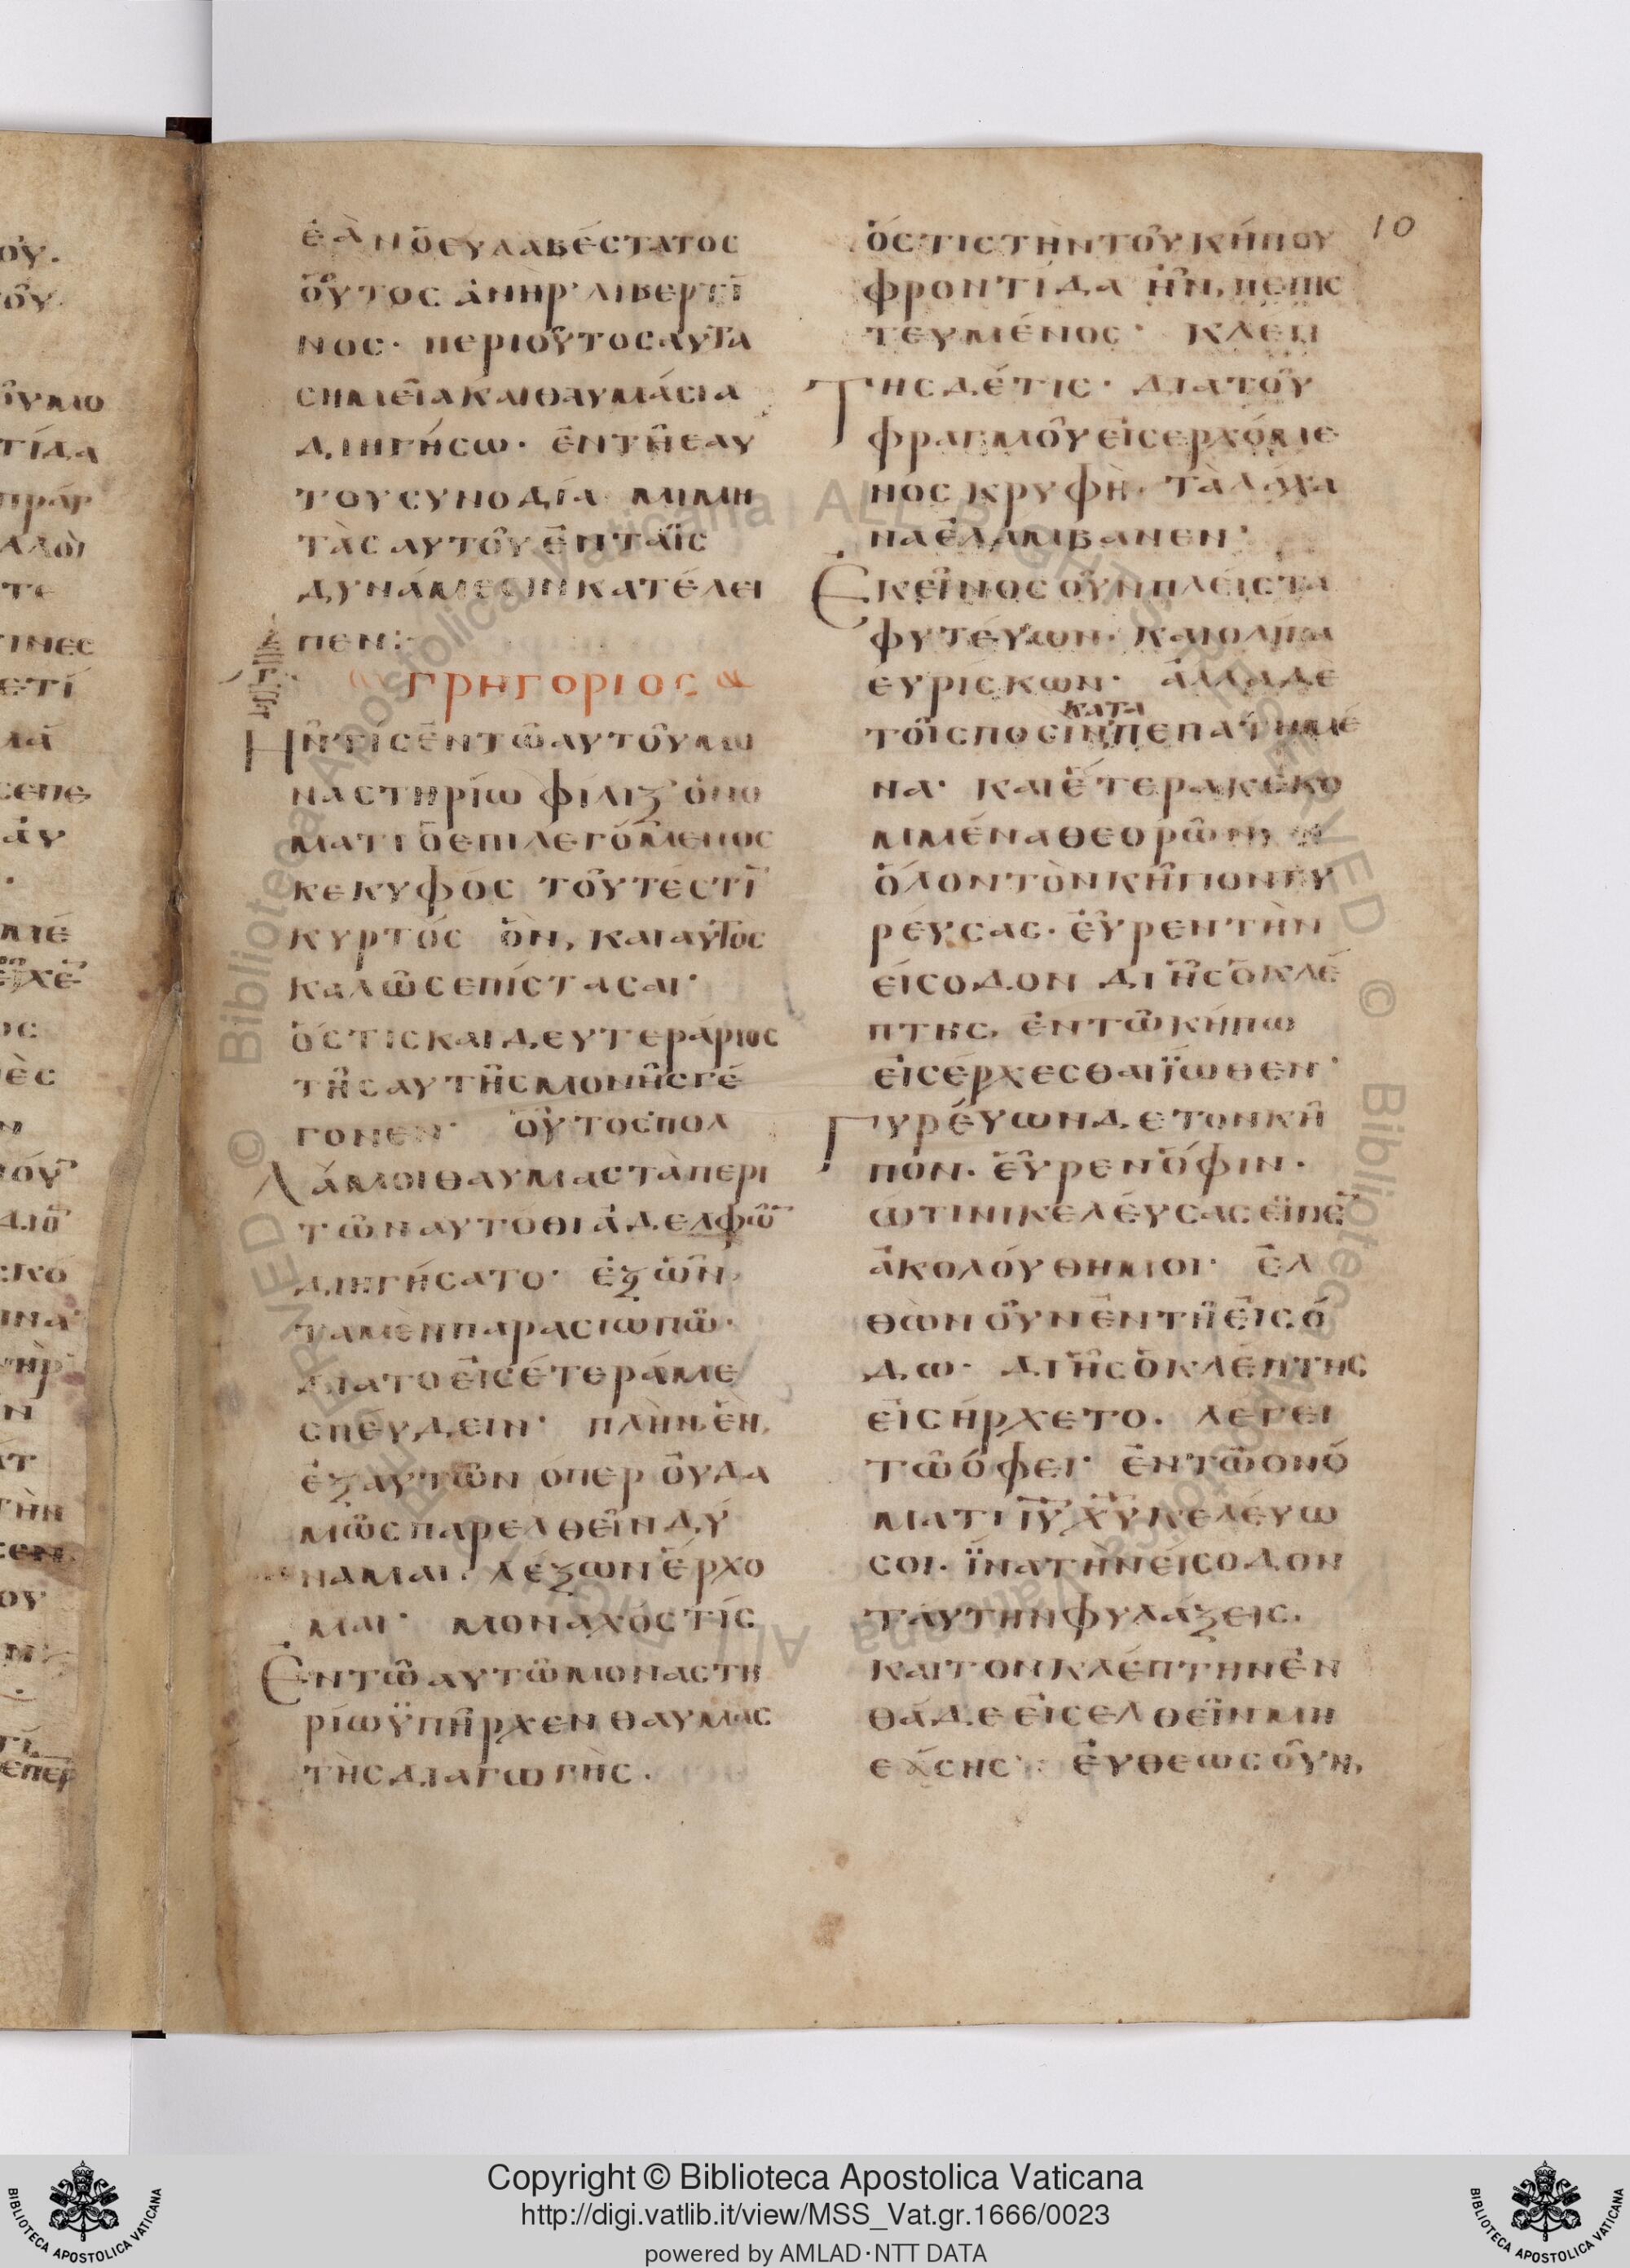 10
ἐὰν ὁ εὐλαβέστατος
οὗτος ἀνὴρ· λιβερτῖ
νος· περὶ οὗτος αυτα
σημεῖα καὶ θαυμάσια
διηγήσω· ἐν τῇ ἑαυ
του συνοδία μιμη
τὰς αυτοῦ ἐν ταῖς
δυνάμεσιν κατέλει
πεν:
ΓΡΗΓΟΡΙΟΣ
Ην τίς ἐν τῶ αυτοῦ μω
ναστηρίω φίλιξ· ὀνο
ματι ὁ επιλεγόμενος
κεκυφός τοῦτέστῖ
κυρτός ὃν, και αὐτὸς
καλῶς επίστασαι·
ὅστις και δευτεράριος
τῆς αυτῆς μονῆς γέ
γονεν· οὗτος πολ
λά μοι θαυμαστὰ περι
τῶν αυτοθι ἀδελφῶ
διηγήσατο· ἐξ ὧν,
τα μὲν παρασιωπῶ·
δια το εἰς ἑτερά με
σπεύδειν· πλὴν ἓν,
ἐξ αυτῶν οπερ οὐδα
μῶς παρελθεῖν δύ
ναμαι. λέξων ἔρχο
μαι· μοναχός τίς
Ἐν τῶ αυτῶ μοναστη
ρίω ϋπῆρχεν θαυμας
τῆς διαγωγῆς.
ὅστις τὴν τοῦ κήπου
φροντίδα ἦν, πεπις
τευμένος· κλεπ
της δέ τις· δια τοῦ
φραγμοῦ εἰσερχόμε
νος κρυφὴ· τὰ λάχα
να ἐλάμβανεν·
Ἐκεῖνος οὖν πλείστα
φυτέυων· και ολιγα
ευρίσκων· ἀλλα δε
τοῖς ποσὶν καταπεπατημέ
να· και ἕτερα κεκο
μμένα θεορῶν·
ὅλον τὸν κῆπον γυ
ρέυσας· εὗρεν τὴν
είσοδον δι ῆς ὁ κλέ
πτης, ἐν τῶ κήπω
εἰσέρχεσθαι ϊώθεν·
Γυρέυων δε τον κῆ
πον· εὗρεν ὄφιν·
ὡτινι κελέυσας εἶπε
ἀκολούθη μοι· ἐλ
θὼν οὖν ἐν τῆ εἰσό
δω· δι ῆς ὁ κλέπτης
εἰσήρχετο. λεγει
τῶ όφει· ἐν τῶ ονό
ματι ιυ χυ κελέυω
σοι· ϊνα τὴν είσοδον
ταυτην φυλάξεις.
και τον κλέπτην ἐν
θάδε εἰσελθεῖν μη
εασης: ἐυθεως οὖν,
Copyright © Biblioteca Apostolica Vaticana
http://digi.vatlib.it/view/MSS_Vat.gr.1666/0023
powered by AMLAD·NTT DATA